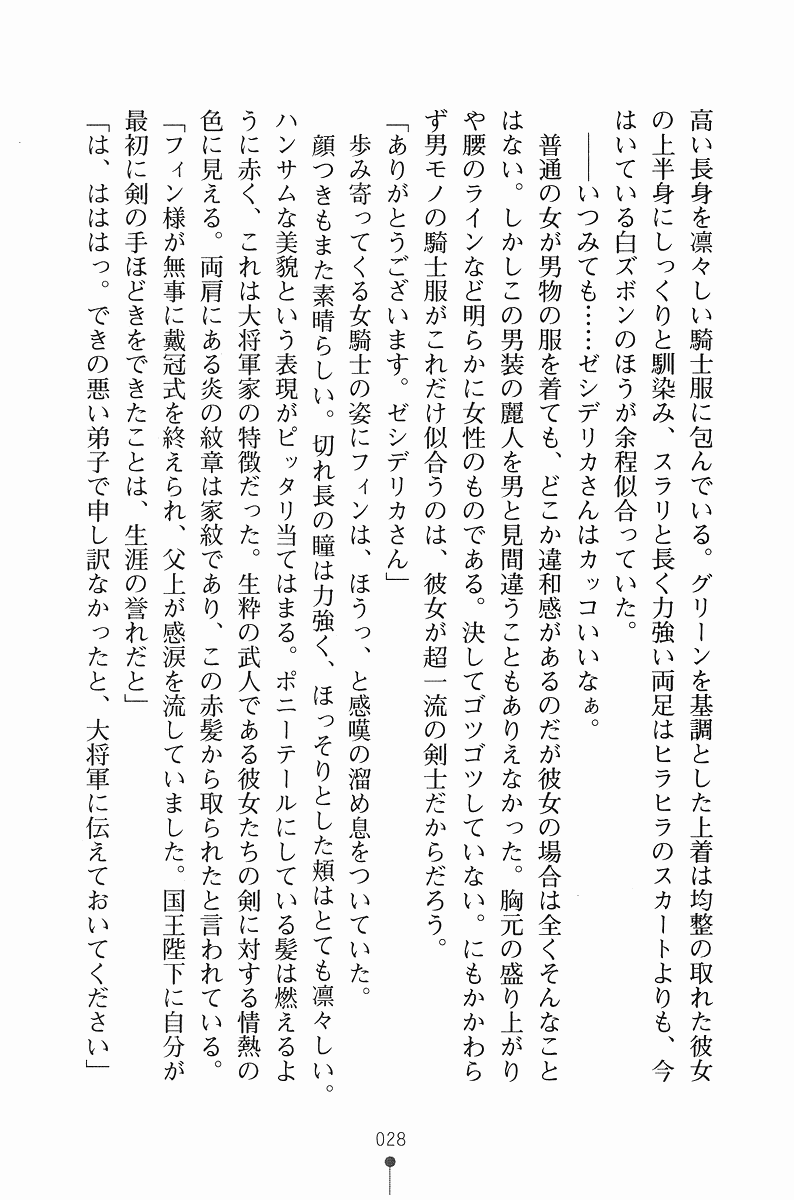 高い長身を凛々しい騎士服に包んでいる。グリーンを基調とした上着は均整の取れた彼女
の上半身にしっくりと馴染み、スラリと長く力強い両足はヒラヒラのスカートよりも、今
はいている白ズボンのほうが余程似合っていた。
――いつみても……ゼシデリカさんはカッコいいなぁ。
普通の女が男物の服を着ても、どこか違和感があるのだが彼女の場合は全くそんなこと
はない。しかしこの男装の麗人を男と見間違うこともありえなかった。胸元の盛り上がり
や腰のラインなど明らかに女性のものである。決してゴツゴツしていない。にもかかわら
ず男モノの騎士服がこれだけ似合うのは、彼女が超一流の剣士だからだろう。
「ありがとうございます。ゼシデリカさん」
歩み寄ってくる女騎士の姿にフィンは、ほうっ、と感嘆の溜め息をついていた。
顔つきもまた素晴らしい。切れ長の瞳は力強く、ほっそりとした頬はとても凛々しい。
ハンサムな美貌という表現がピッタリ当てはまる。ポニーテールにしている髪は燃えるよ
うに赤く、これは大将軍家の特徴だった。生粋の武人である彼女たちの剣に対する情熱の
色に見える。両肩にある炎の紋章は家紋であり、この赤髪から取られたと言われている。
「フィン様が無事に戴冠式を終えられ、父上が感涙を流していました。国王陛下に自分が
最初に剣の手ほどきをできたことは、生涯の誉れだと」
「は、はははっ。できの悪い弟子で申し訳なかったと、大将軍に伝えておいてください」
028